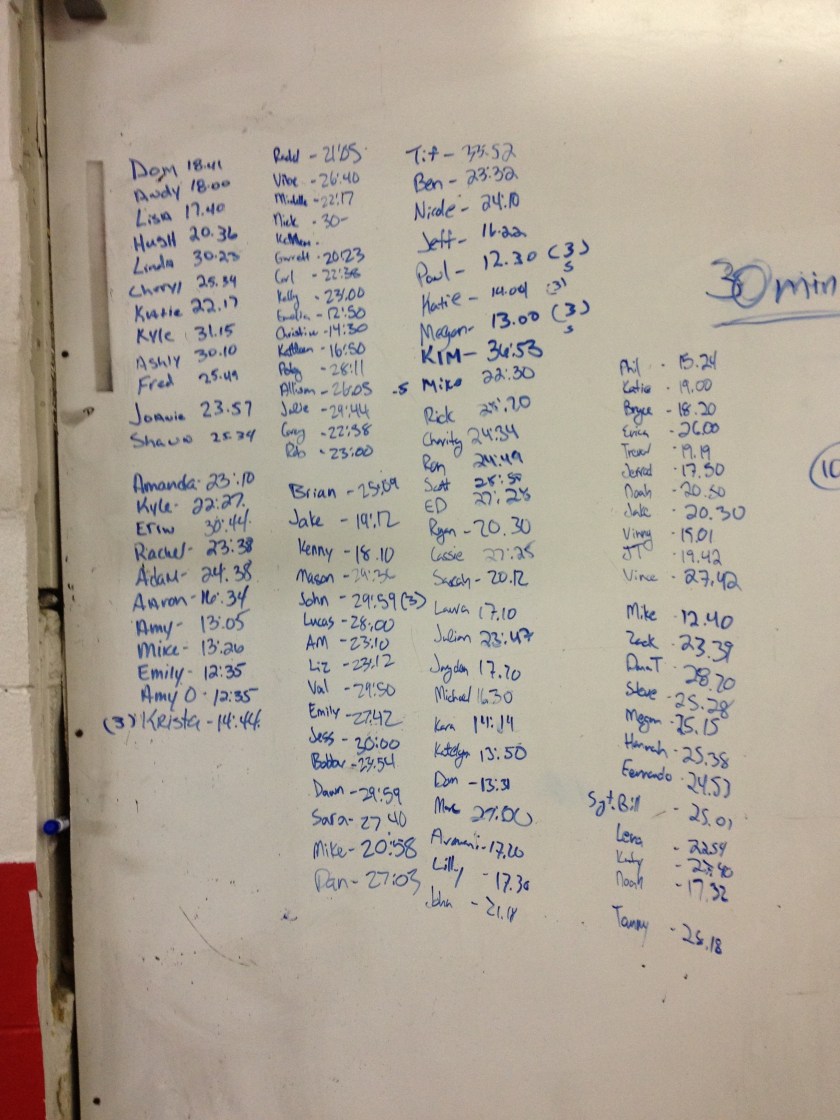 Dom 18.41
Andy 18.00
Lisa 17.40
Hush 20.36
Linda 30.23
Cheryl 25.34
Katie 22.17
Kyle 31.15
Ashly 30.10
Fred 25.49
Joanie 23.57
Shawn 25.34
Amanda - 23:10
Kyle - 22:27
Erin 30:44
Rachel - 23:38
Adam - 24.38
Aaron - 16:34
Amy - 13:05
Mike - 13:26
Emily - 12:35
Amy O - 12:35
(3) Krista - 14:44
- 21:05
Vibe - 26:40
Michelle - 22:17
Nick - 30-
Kathleen -
Garrett - 20:23
Carl - 22:38
Kelly - 23:00
Emelia - 12:50
Christine - 14:30
Kathleen - 16:50
- 28:11
Allison - 26:05 -5
Julie - 29:44
Greg - 22:38
Rob - 23:00
Brian - 25:09
Jake - 19:12
Kenny - 18.10
Mason - 29:36
John - 29:59 (3)
Lucas - 28:00
AM - 23:10
Liz - 23:12
Val - 29:50
Emily - 27:42
Jess - 30:00
Bobby - 23:54
Dawn - 29:59
Sara - 27 40
Mike - 20:58
Dan - 27:03
Tif - 33:52
Ben - 23:32
Nicole - 24.10
Jeff - 16:22
Paul - 12.30 (3)
5
Katie - 14.04 (3)
Megan - 13.00 (3)
5
KIM - 36:53
Mike 22:30
Rick 25:20
Charity 24:34
Ron 24:49
Scott 28:50
ED 27:28
Ryan - 20.30
Cassie 27:25
Sarah - 20.12
Laura 17.10
Julian 23:47
Jayden 17.20
Michael 16.30
Kara 14:14
Katelyn 13:50
Dan - 13:31
Marc 27:00
Armani - 17.20
Lilly - 17.30
John - 21.18
30 min
10
Phil - 15.24
Katie - 19.00
Bryce - 18.20
Erica - 26.00
Trevor - 19.19
Jerrod - 17.50
Noah - 20.50
Jake - 20.30
Vinny - 15.01
JT - 19.42
Vince - 27.42
Mike - 12.40
Zack - 23.39
Dan T - 28.20
Steve - 25.28
Megan - 25.15
Hannah - 25.38
Fernando - 24.53
Sgt. Bill - 25.01
Lena - 22.59
- 25.40
Noah - 17.32
Tammy - 25.18